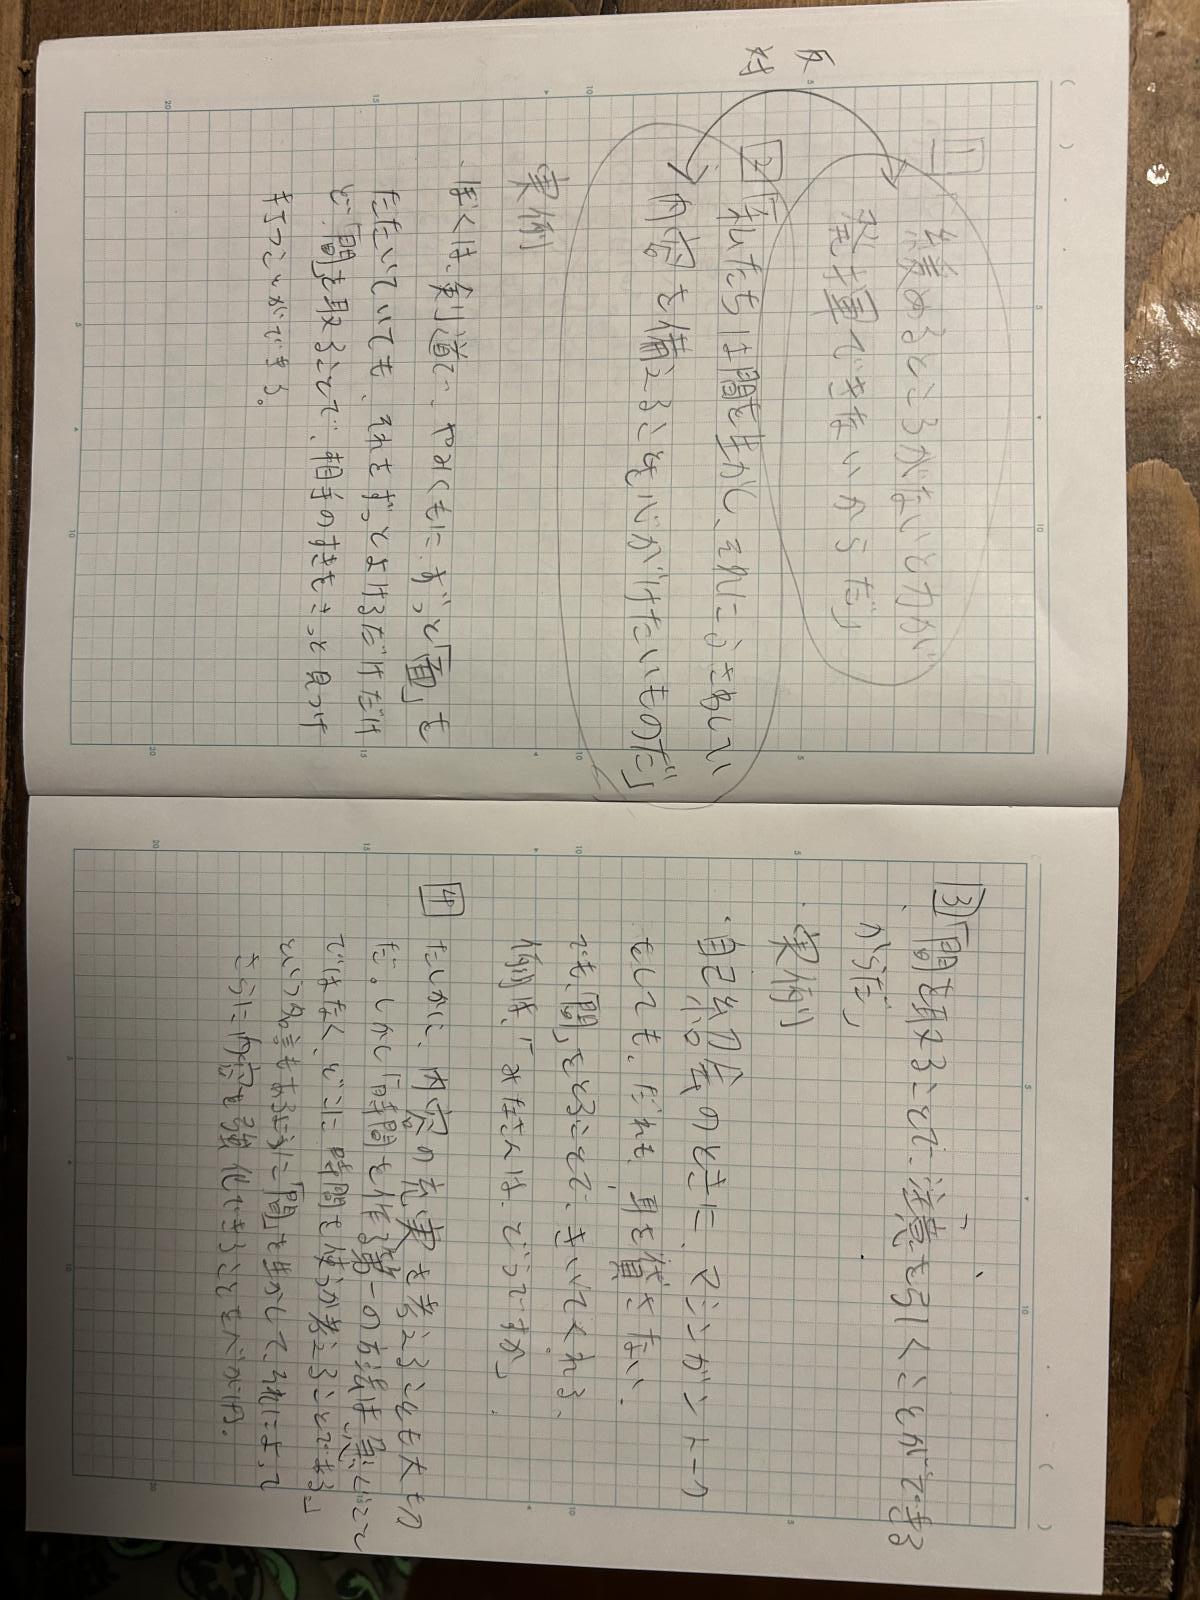 反対
1
緩めるところがないと力が
発揮できないからだ」
2 「私たちは間を生かし、それにふさわしい
内容を備えることを心がけたいものだ」
実例
・ぼくは、剣道で、やみくもに、ずっと「面」を
たたいていても、それをずっとよけるだけだけ
ど、「間」を取ることで、相手のすきをさっと見つけ
打つことができる。
3 「間を取ることで、注意を引くことができる
からだ」
・実例
・自己紹介のときに、マシンガントーク
をしても、だれも、耳を貸さない、
でも、「間」をとることで、きいてくれる、
例は、「みなさんは、どうですか」
4
たしかに、内容の充実を考えることも大切
だ。しかし「時間を作る第一の方法は急ぐこと
ではなく、どこに時間を使うか考えることである」
という名言もあるように「間」を生かして、それによって
さらに内容を強化できることをすべきだ。